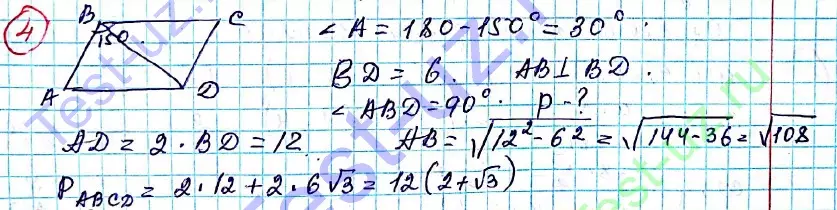 4
B C
150
A D
∠A = 180 - 150° = 30°.
BD = 6. AB ⊥ BD.
∠ABD = 90°. P - ?
AD = 2 · BD = 12 AB = √(12² - 6²) = √(144-36) = √108
P_ABCD = 2·12 + 2·6√3 = 12(2+√3)
Test-uz.ru
Test-uz.ru
Test-uz.ru